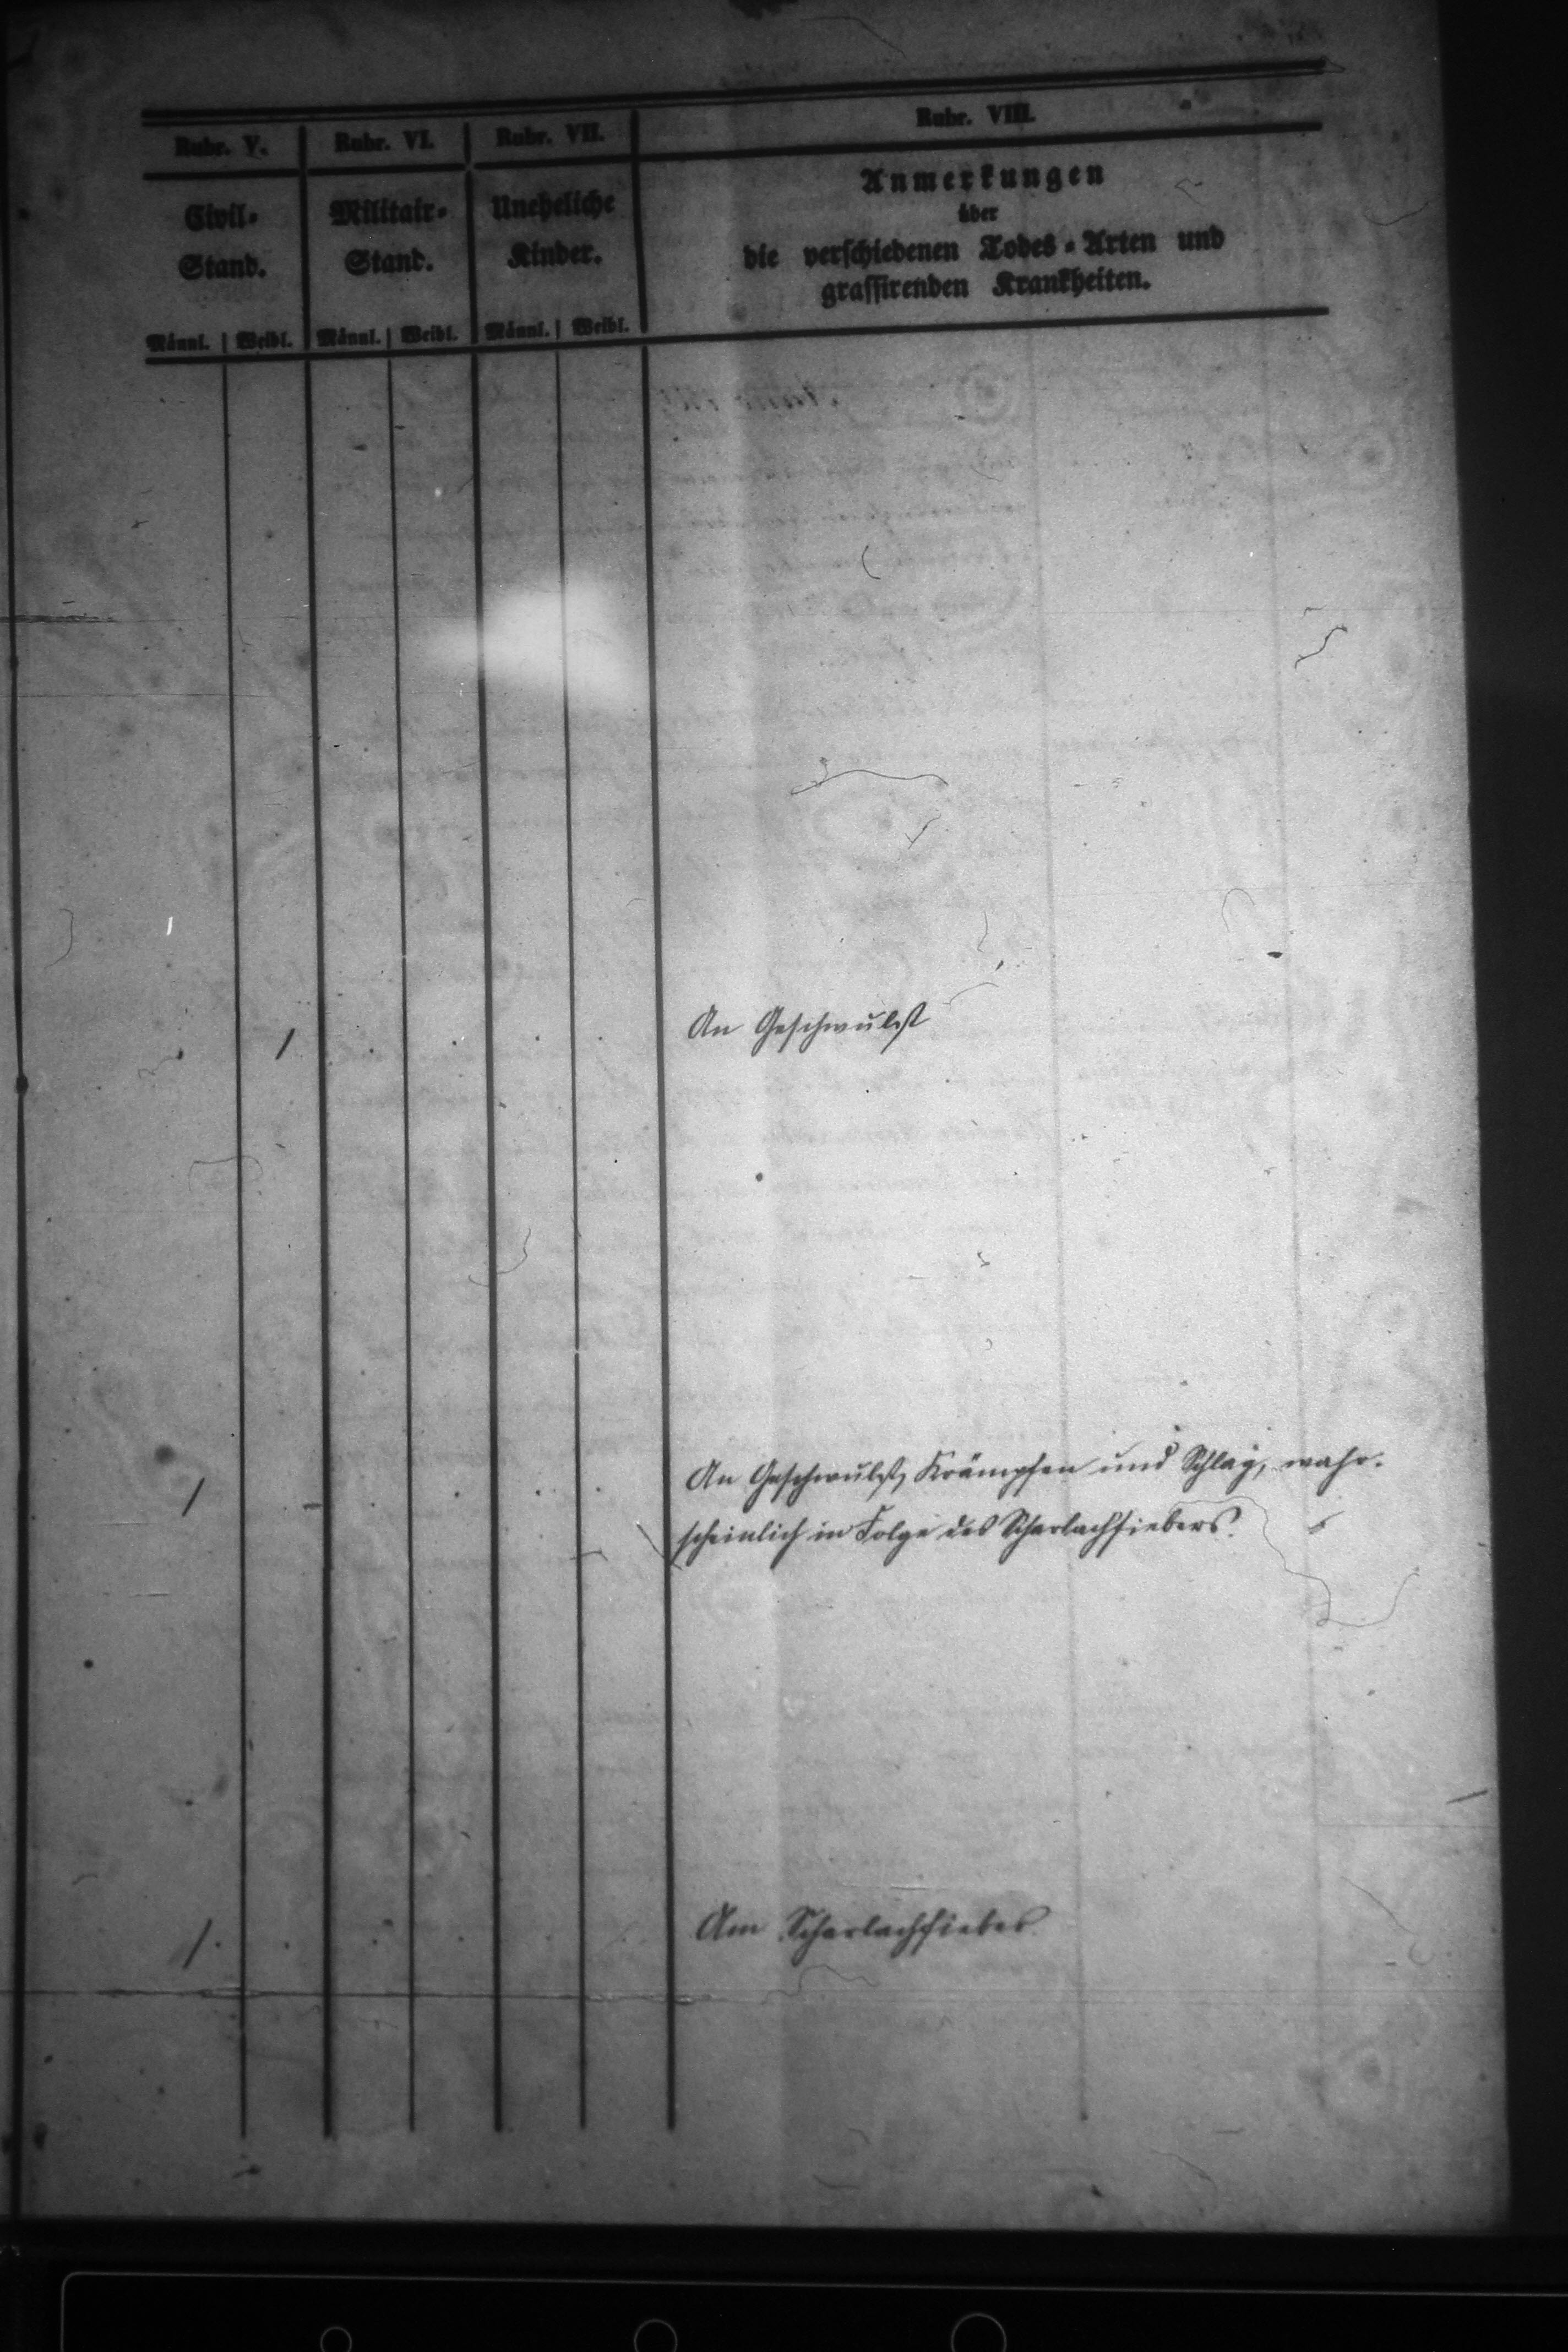 Rubr. V. Rubr. VI. Rubr. VII. Rubr. VIII.
Civil-Stand. Militair-Stand. Uneheliche Kinder. Anmerkungen
über
die verschiedenen Todes-Arten und
grassirenden Krankheiten.
Männl. Weibl. Männl. Weibl. Männl. Weibl.
1 . . . . An Geschwulst
1 An Geschwulst, Krämpfen und Schlag, wahr-
scheinlich in Folge des Scharlachfiebers.
1 . . . . Am Scharlachfieber